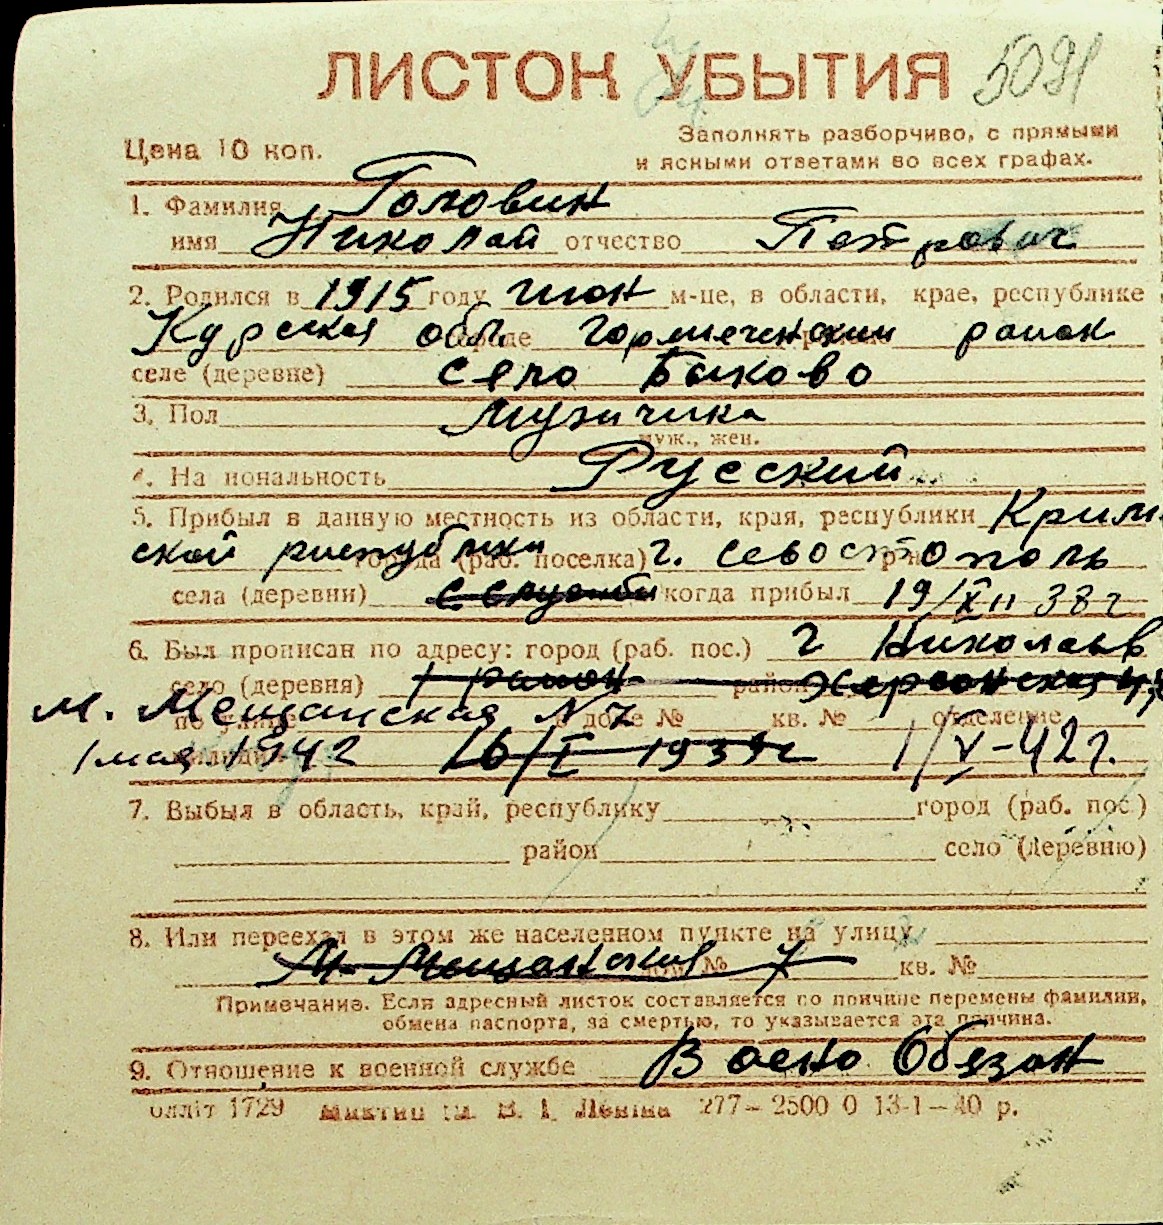 ЛИСТОК УБЫТИЯ 5091
Цена 10 коп.
Заполнять разборчиво, с прямыми
и ясными ответами во всех графах.
1. Фамилия Головин
имя Николай отчество Петрович
2. Родился в 1915 году июн м-це, в области, крае, республике
Курская обл. Горшеченский район
селе (деревне) село Быково
3. Пол Мужчина
муж., жен.
4. Национальность Русский
5. Прибыл в данную местность из области, края, республики Крым-
ской республики города (раб. поселка) г. Севостополь
села (деревни) с службы когда прибыл 19/XII 38 г
6. Был прописан по адресу: город (раб. пос.) г Николаев
село (деревня) 1 район район Херсонская
М. Мещанская N 7 по улице дом № кв. № отделение
1 мая 1942 милиции 16/I 1939 г 1/V-42 г.
7. Выбыл в область, край, республику город (раб. пос.)
район село (деревню)
8. Или переехал в этом же населенном пункте на улицу
М. Мещанская 7 кв. №
Примечание. Если адресный листок составляется по причине перемены фамилии,
обмена паспорта, за смертью, то указывается эта причина.
9. Отношение к военной службе Воено Обязан
1729 В. І. Леніна 277—2500 0 13-1—40 р.